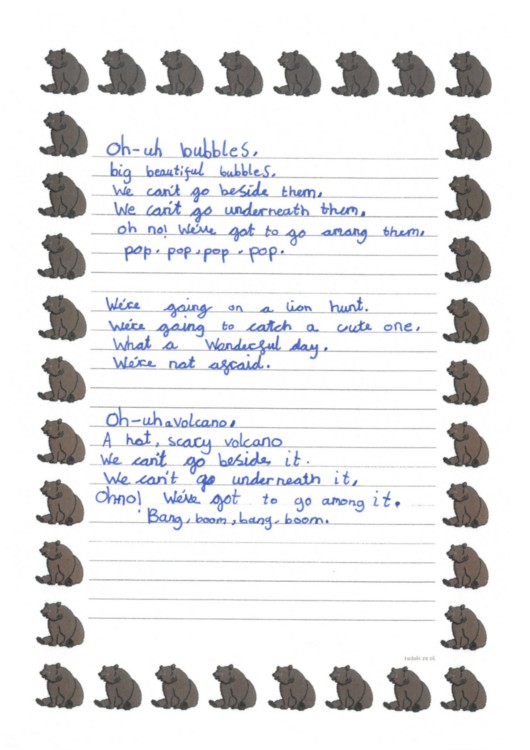 Oh-uh bubbles,
big beautiful bubbles,
We can't go beside them,
We can't go underneath them,
oh no! We've got to go among them,
pop, pop, pop, pop.
We're going on a lion hunt.
We're going to catch a cute one,
What a Wonderful day,
We're not afraid.
Oh-uh a volcano,
A hot, scary volcano
We can't go beside it.
We can't go underneath it,
Ohno! We've got to go among it.
Bang, boom, bang, boom.